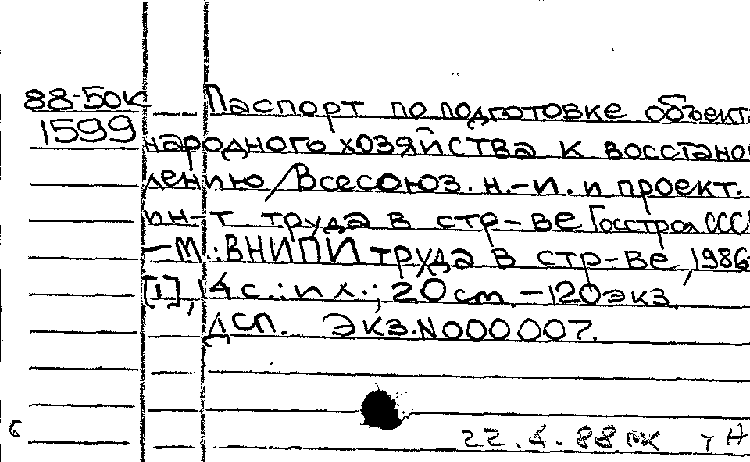 88-50к Паспорт по подготовке объект
1599 народного хозяйства к восстано
лению/Всесоюз. н.-и. и проект.
ин-т труда в стр-ве Госстроя ССС
—М.: ВНИПИ труда в стр-ве, 1986
[1], 4 с.: ил.; 20 cm. — 120 экз.
ДСП. Экз. N 000007.
22.4.88